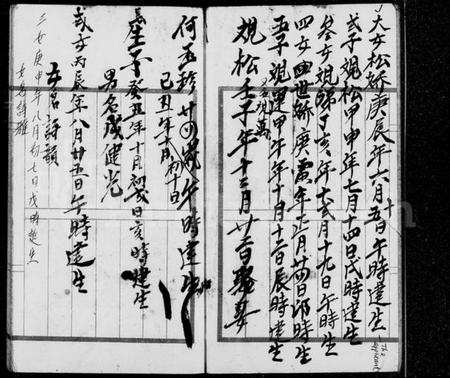 大女松嬌庚辰年六月十五日午時建生
弍子覌松甲申年七月十四日戌時建生
叁女覌歸丁亥年十弍月十九日午時生
四女四世嬌庚寅年正月廿四日卯時生
五子覌運甲午年十月十三日辰時建生
覌松壬子年十二月廿二日娶妻
何玉珍廿四歲午時建生
己丑年十月初十日
長生一子癸丑年十月初弍日亥時建生
男名成健光
弍女丙辰年八月廿五日午時建生
女名詩韻
三女庚申年八月初七日戌時建生
女名詩雅
The
applicant